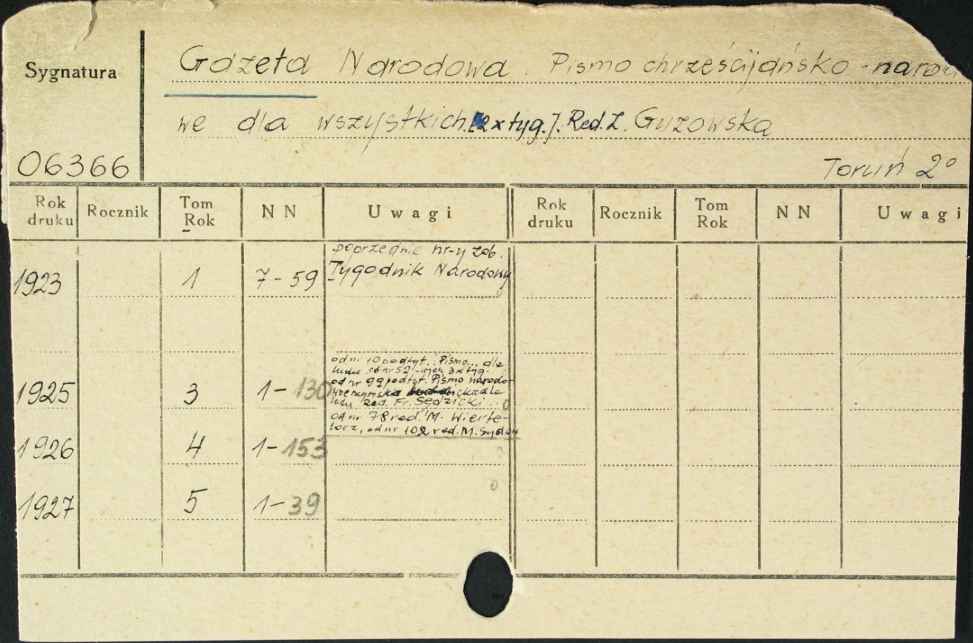 Sygnatura
Gazeta Narodowa. Pismo chrześcijańsko-narodo
we dla wszystkich. [2 x tyg.]. Red. Z. Guzowska
06366
Toruń 2°
Rok druku Rocznik Tom Rok NN Uwagi Rok druku Rocznik Tom Rok NN Uwagi
poprzednie nr-y zob.
1923 1 7-59 Tygodnik Narodowy
od nr 10 podtyt. Pismo... dla
ludu od nr 52 3 x tyg.
od nr 99 podtyt. Pismo narodo
1925 3 1-130
ludu Red. Fr. Sędzicki
od nr 78 red. M. Wierte-
lorz, od nr 102 red. M. Sydow
1926 4 1-153
1927 5 1-39